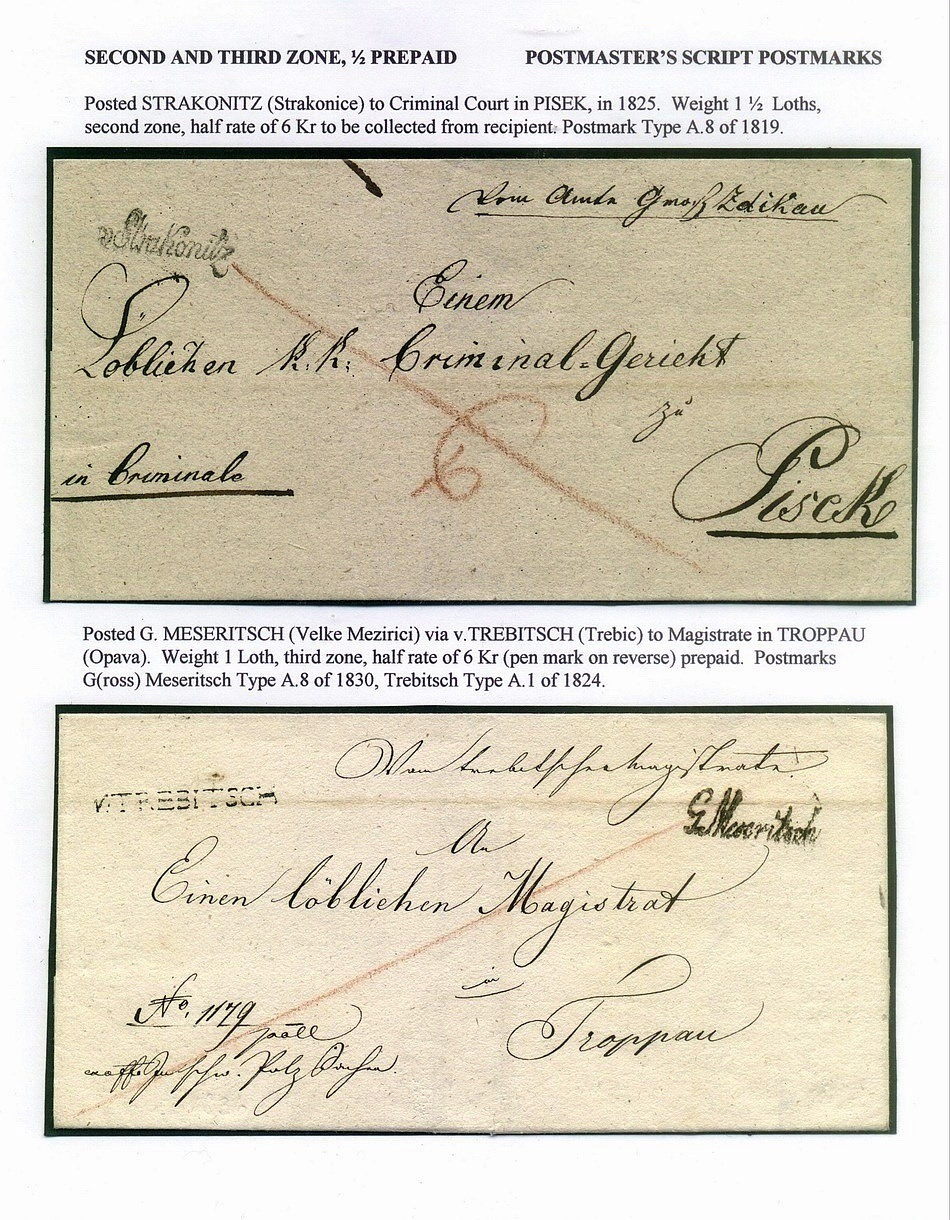 SECOND AND THIRD ZONE, ½ PREPAID POSTMASTER'S SCRIPT POSTMARKS
Posted STRAKONITZ (Strakonice) to Criminal Court in PISEK, in 1825. Weight 1 ½ Loths,
second zone, half rate of 6 Kr to be collected from recipient. Postmark Type A.8 of 1819.
Vom Amte Groß Zdikau
v Strakonitz
Einem
Löblichen k.k. Criminal=Gericht
zu
6
in Criminale
Piseck
Posted G. MESERITSCH (Velke Mezirici) via v.TREBITSCH (Trebic) to Magistrate in TROPPAU
(Opava). Weight 1 Loth, third zone, half rate of 6 Kr (pen mark on reverse) prepaid. Postmarks
G(ross) Meseritsch Type A.8 of 1830, Trebitsch Type A.1 of 1824.
Vom trebitscher Magistrate
v.TREBITSCH
G. Meseritsch
An
Einen löblichen Magistrat
in
No. 1179
Troppau